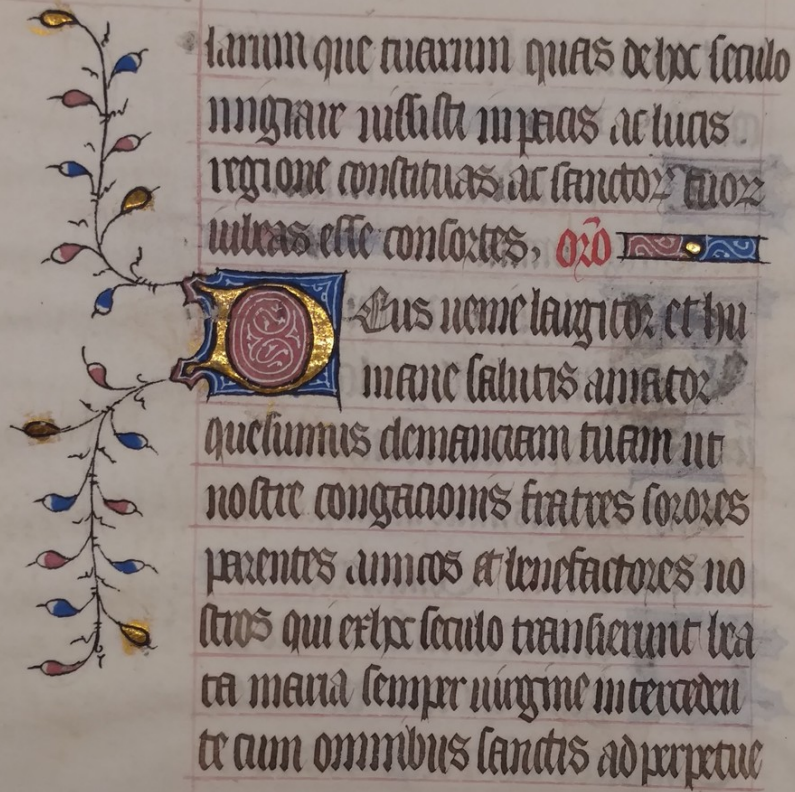 larum que tuarum quas de hoc seculo
migrare iussisti in pacis ac lucis
regione constituas ac sanctoꝝ tuoꝝ
iubeas esse consortes. oro
Deus uenie largitor et hu
mane salutis amator
quesumus clemanciam tuam ut
nostre congacionis fratres sorores
parentes amicos et benefactores no
stros qui ex hoc seculo transierunt bea
ta maria semper uirgine interceden
te cum omnibus sanctis ad perpetue